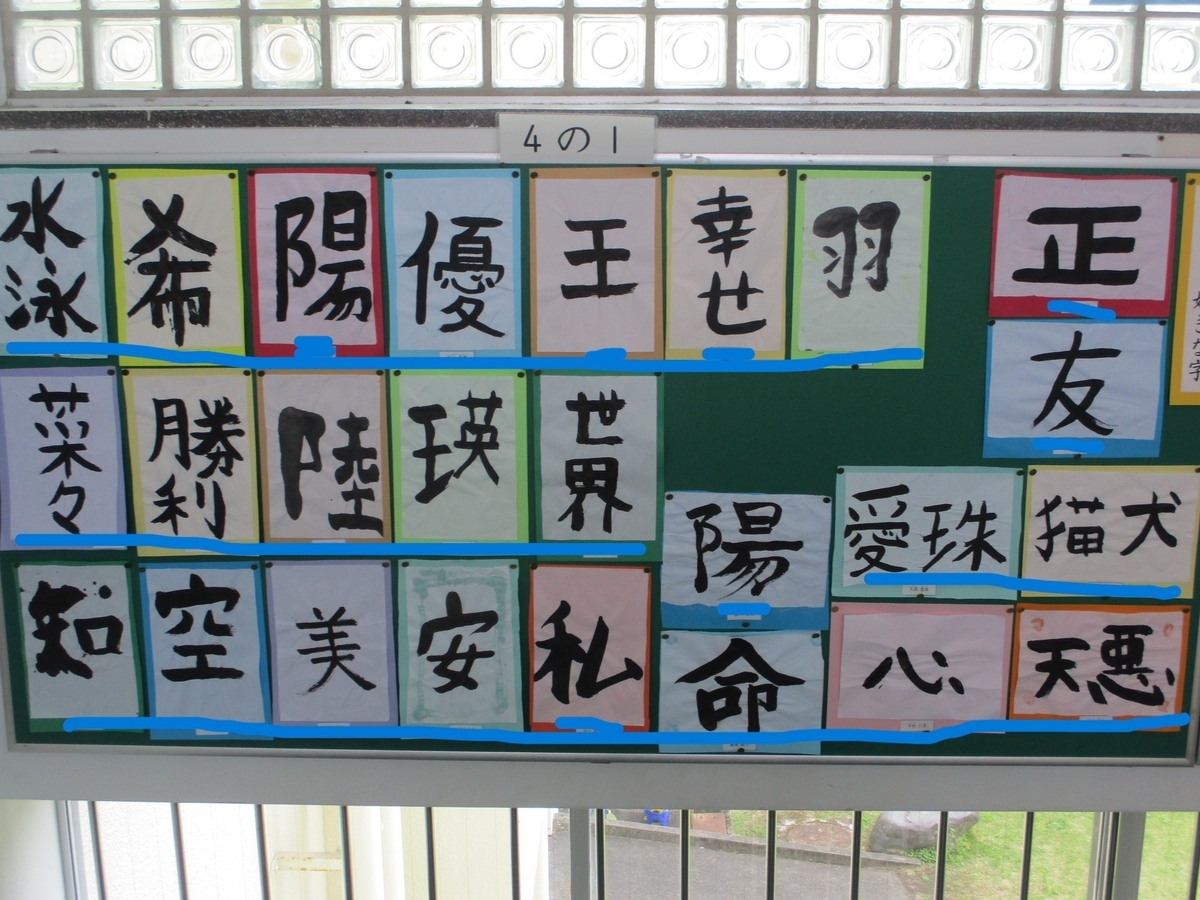 4の1
水泳
希
陽
優
王
幸せ
羽
正
友
菜々
勝利
陸
瑛
世界
陽
愛珠
猫犬
知
空
美
安
私
命
心
天悪